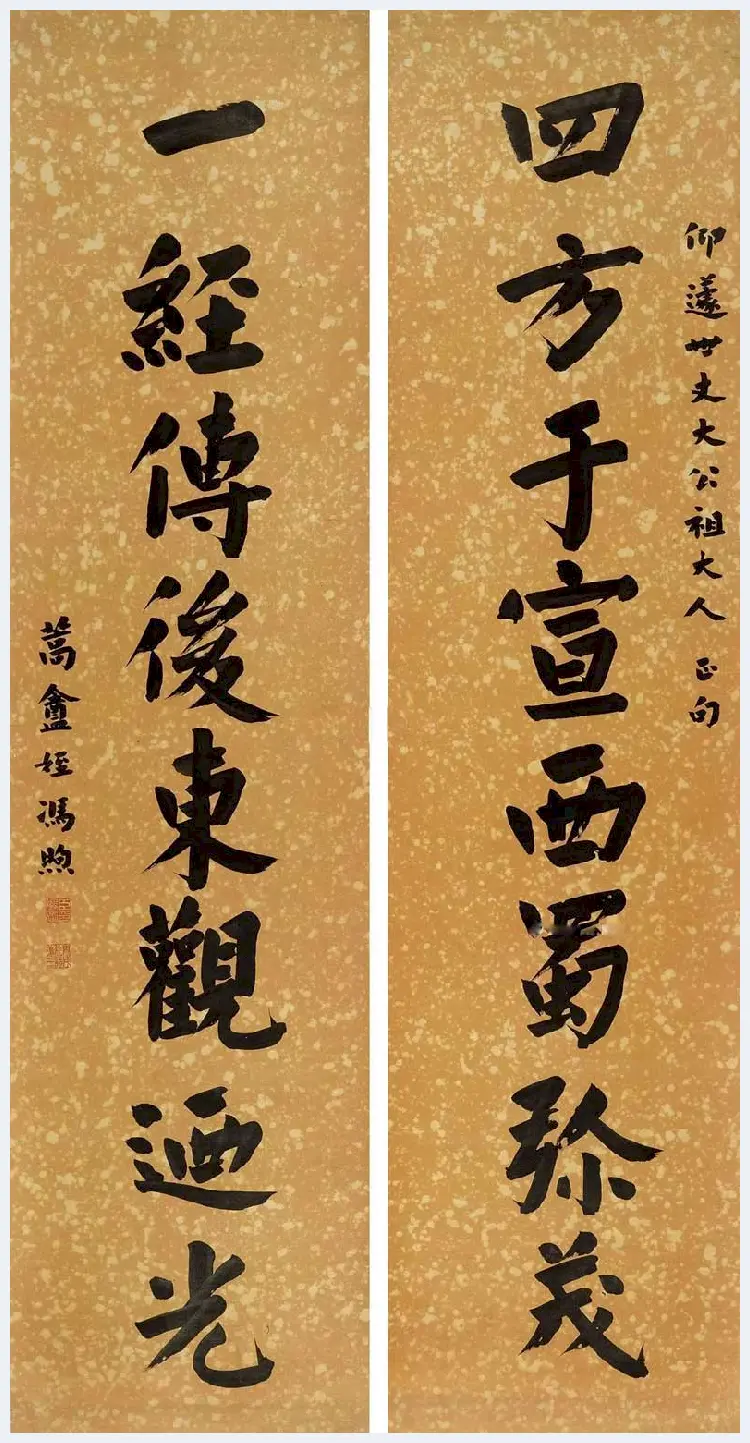 仰蘧世丈大公祖大人 正句
四方于宣西蜀弥茂
一經傳後東觀迺光
蒿盦姪馮煦